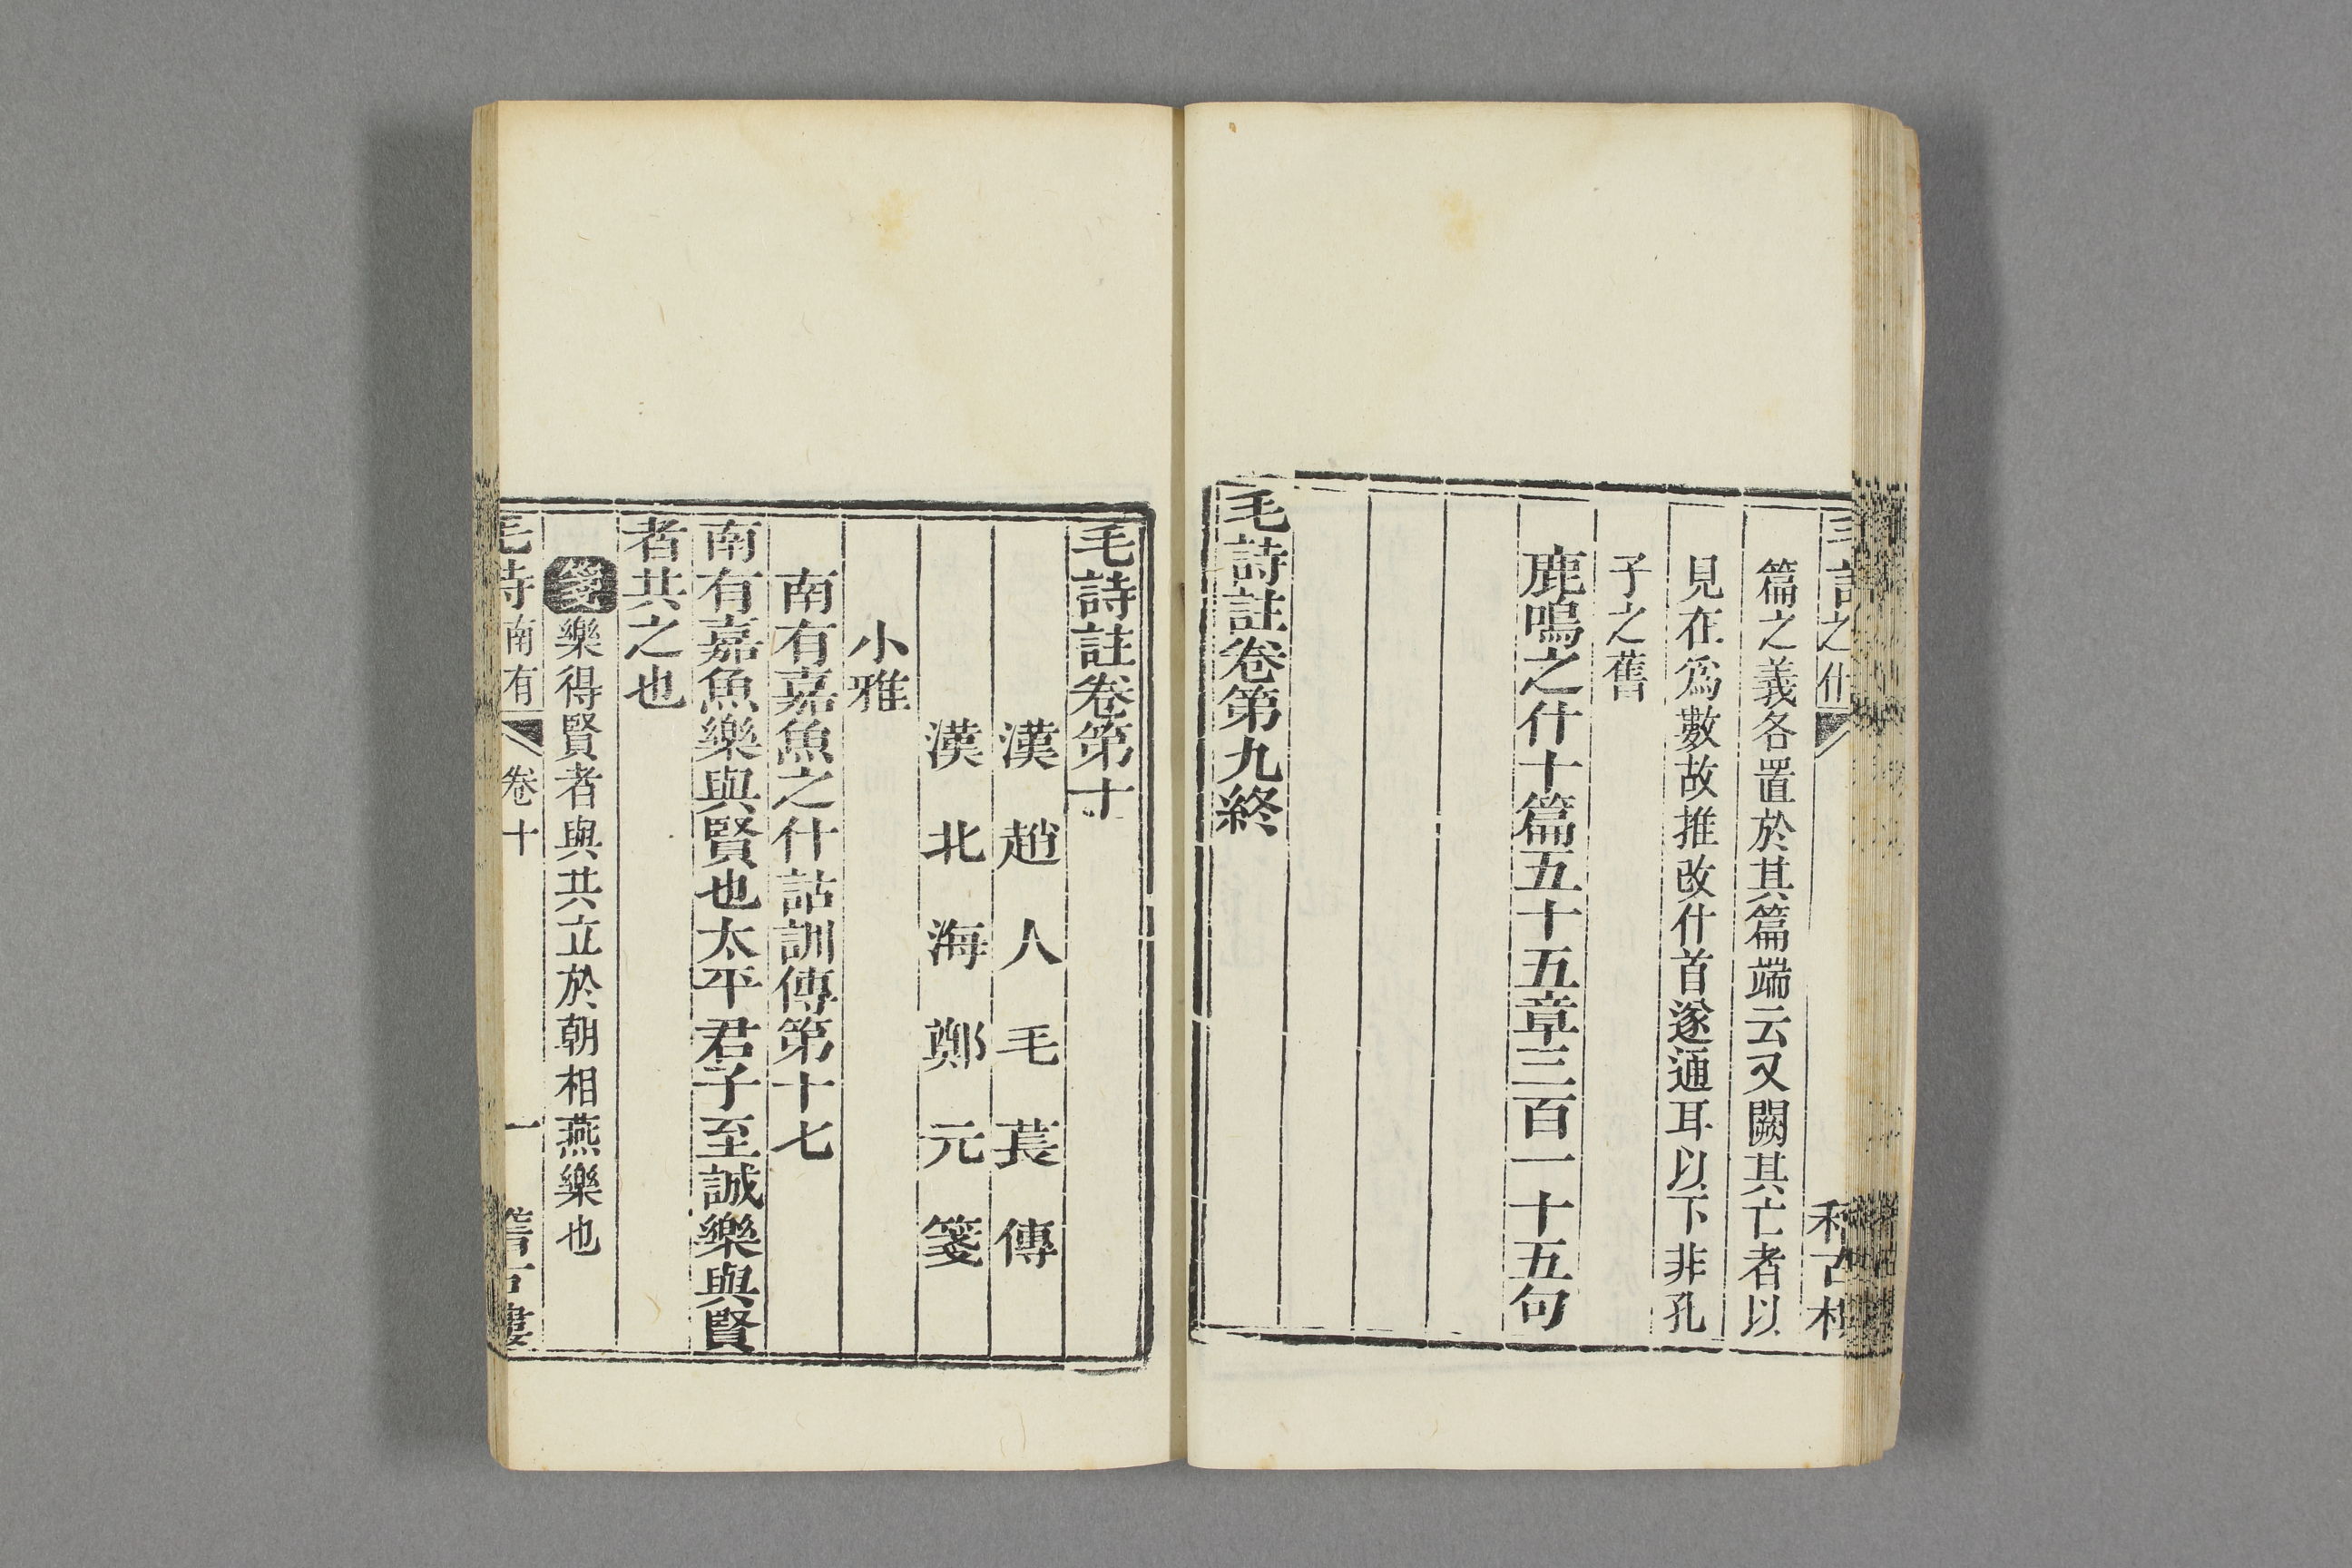 篇之義各置於其篇端云又闕其亡者以
見在爲數故推改什首遂通耳以下非孔
子之舊
鹿鳴之什十篇五十五章三百一十五句
毛詩註卷第九終
毛詩註卷第十
漢趙人毛萇傳
漢北海鄭元箋
小雅
南有嘉魚之什詁訓傳第十七
南有嘉魚樂與賢也太平君子至誠樂與賢
者共之也
箋樂得賢者與共立於朝相燕樂也
毛詩南有 卷十 一